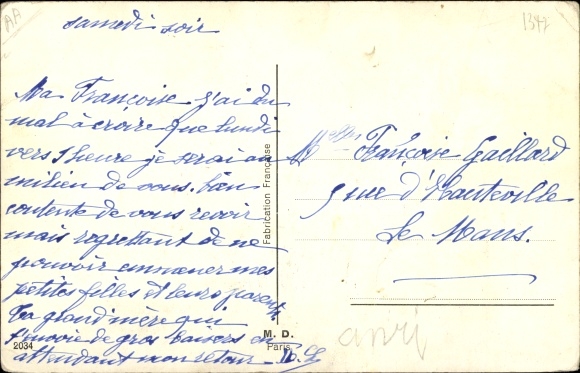 samedi soir
1347
Ma Françoise j'ai du
mal à croire que lundi
vers 1 heure je serai au
milieu de vous. bien
contente de vous revoir
mais regrettant de ne
pouvoir emmener mes
petites filles et leurs parents
Ta grand'mère qui
t'envoie de gros baisers en
attendant mon retour
Fabrication Française
M. D.
Paris
2034
Melle Françoise Gaillard
rue d'Hauteville
Le Mans.